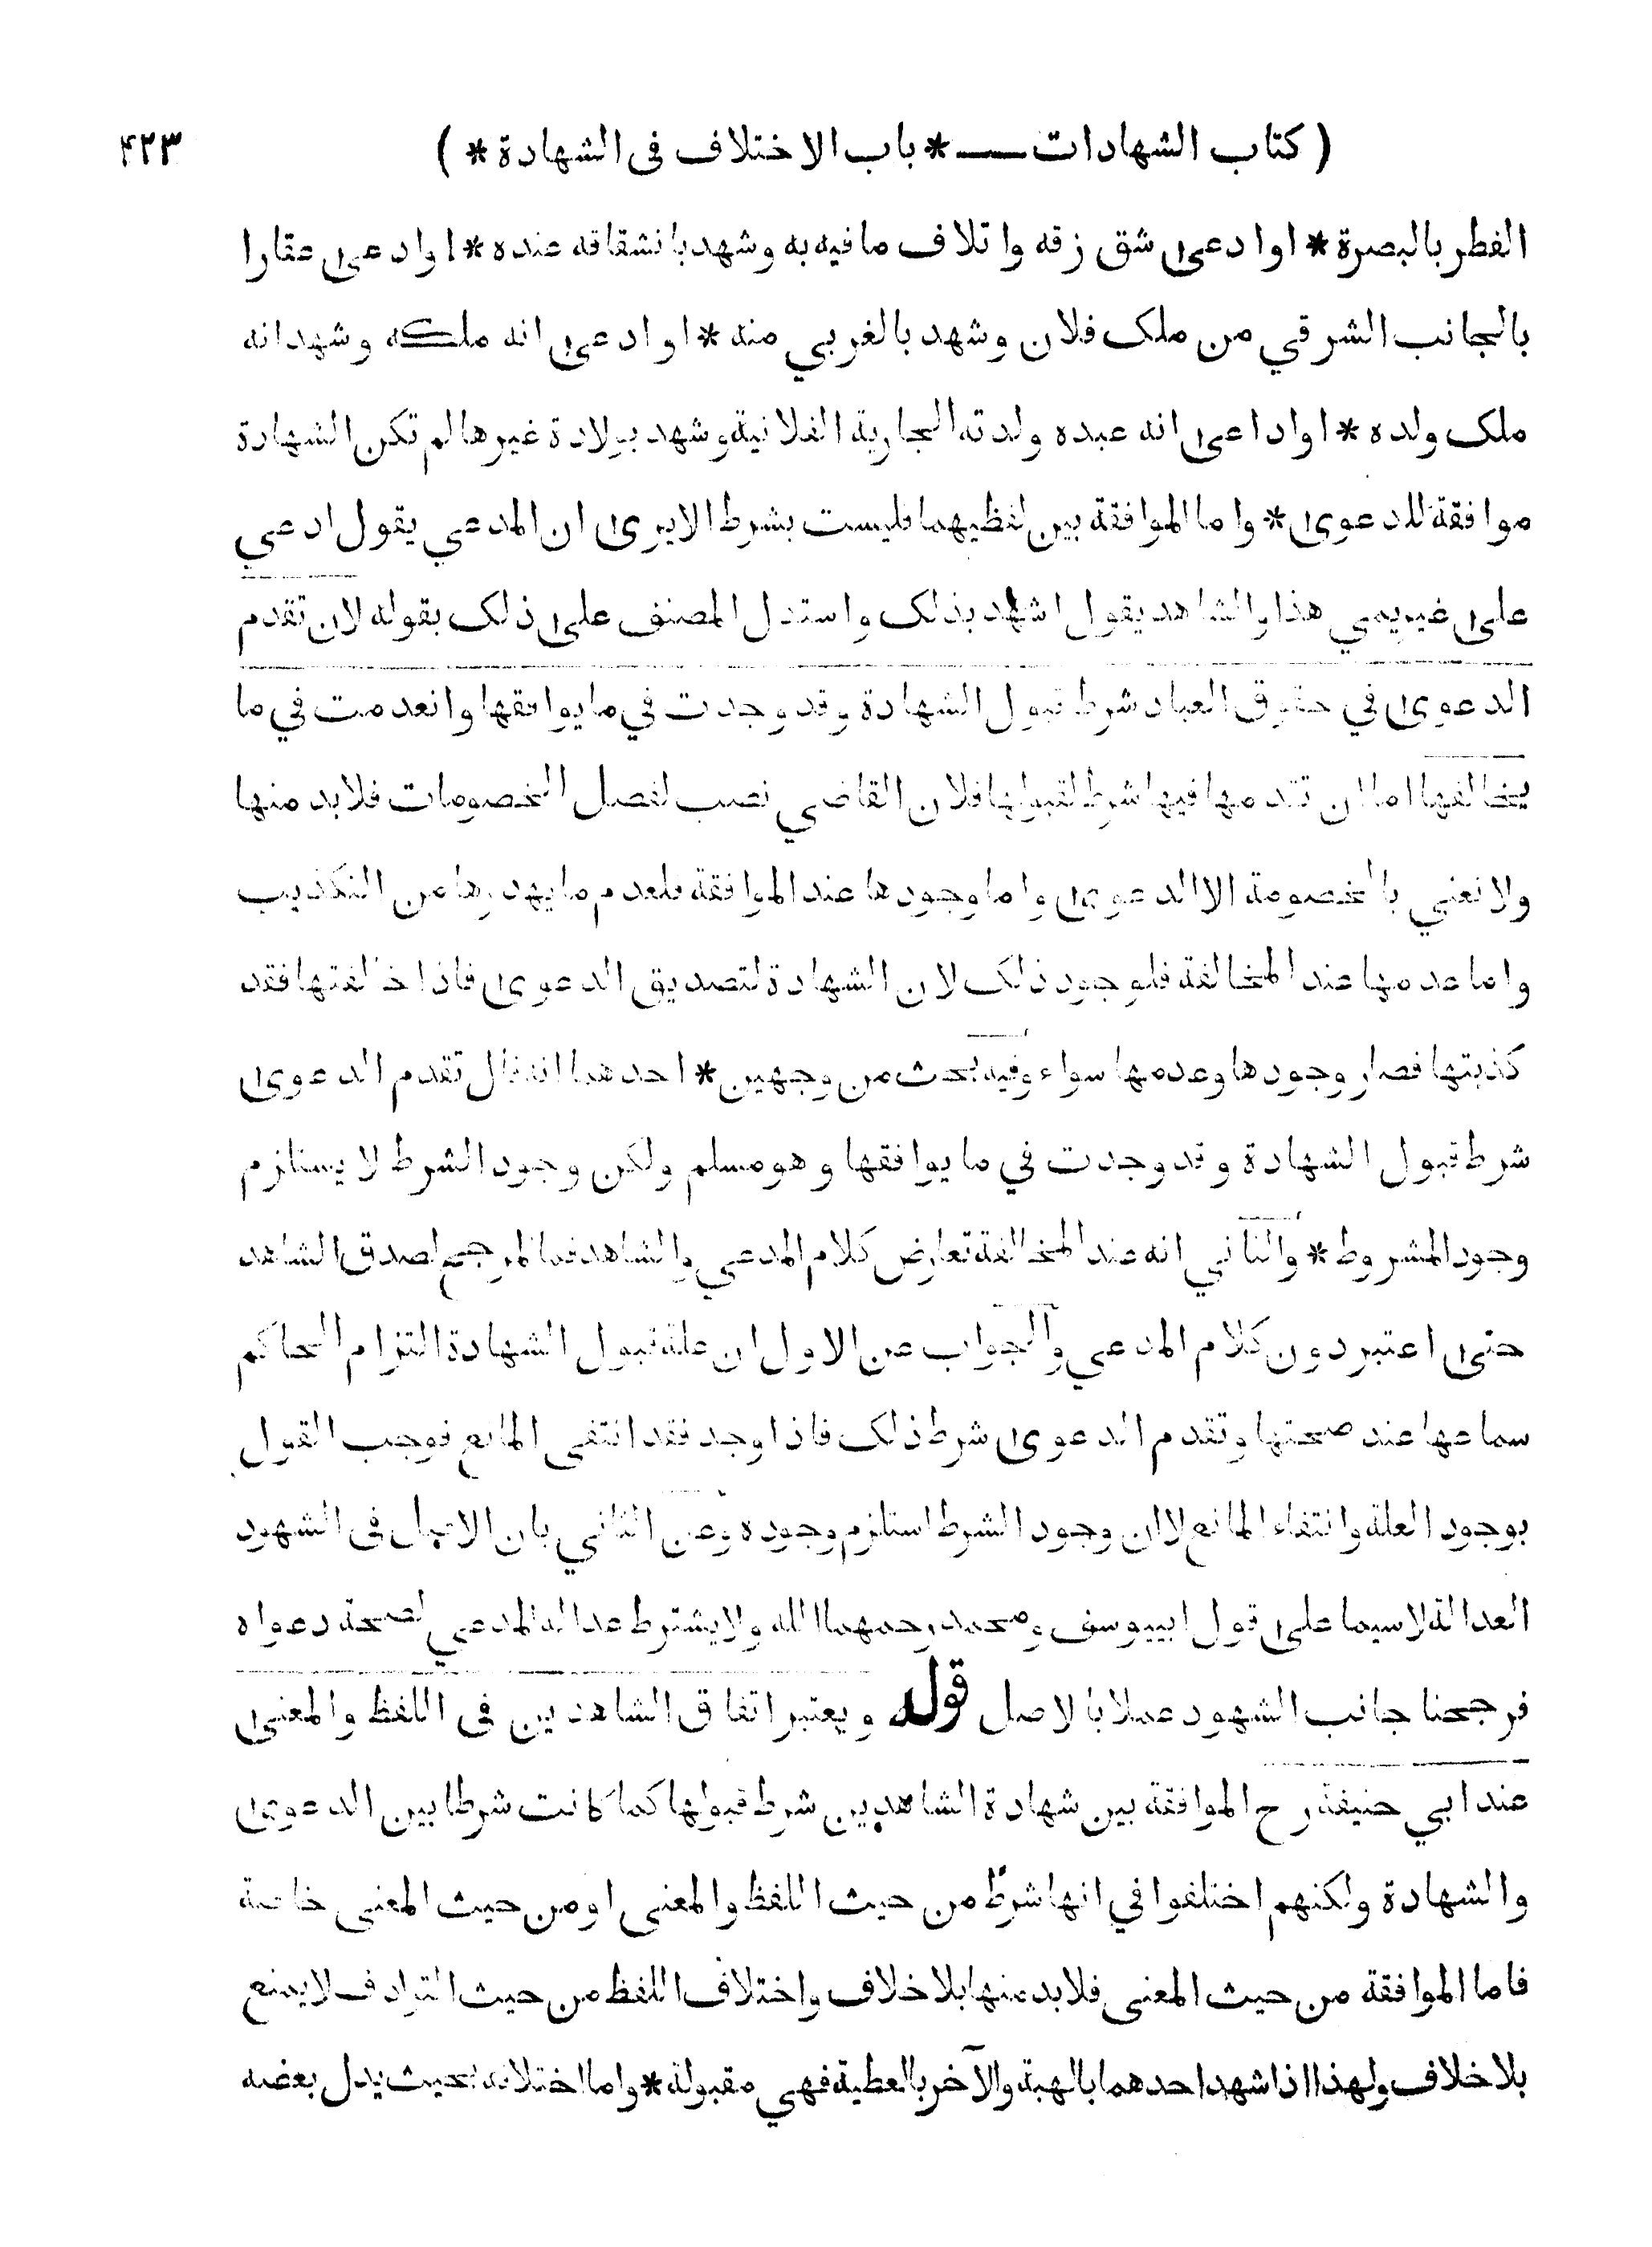 ( كتاب الشهادات — * باب الاختلاف فى الشهادة * ) ۴۲۳
الفطر بالبصرة * او ادعى شق زقه واتلاف ما فيه به وشهد بانشقاقه عنده * او ادعى عقارا
بالجانب الشرقي من ملك فلان وشهد بالغربي منه * او ادعى انه ملكه وشهد انه
ملك ولده * او اداعى انه عبده ولدته الجارية الفلانية وشهد بولادة غيرها لم تكن الشهادة
موافقة للدعوى * واما الموافقة بين لفظيهما فليست بشرط الايرى ان المدعي يقول ادعي
على غريمي هذا والشاهد يقول اشهد بذلك واستدل المصنف على ذلك بقوله لان تقدم
الدعوى في حقوق العباد شرط قبول الشهادة وقد وجدت في ما يوافقها وانعدمت في ما
يخالفها اما ان تقدمها فيها شرط لقبولها فلان القاضي نصب لفصل الخصومات فلابد منها
ولا نعني بالخصومة الا الدعوى واما وجودها عند الموافقة فلعدم ما يهدرها من التكذيب
واما عدمها عند المخالفة فلوجود ذلك لان الشهادة لتصديق الدعوى فاذا خالفتها فقد
كذبتها فصار وجودها وعدمها سواء وفيه بحث من وجهين * احدهما انه قال تقدم الدعوى
شرط قبول الشهادة وقد وجدت في ما يوافقها وهو مسلم ولكن وجود الشرط لا يستلزم
وجود المشروط * والثاني انه عند المخالفة تعارض كلام المدعي والشاهد فما المرجح لصدق الشاهد
حتى اعتبر دون كلام المدعي والجواب عن الاول ان علة قبول الشهادة التزام الحاكم
سماعها عند صحتها وتقدم الدعوى شرط ذلك فاذا وجد فقد انتفى المانع فوجب القول
بوجود العلة وانتفاء المانع لا ان وجود الشرط استلزم وجوده وعن الثاني بان الاصل فى الشهود
العدالة لاسيما على قول ابييوسف ومحمد رحمهما الله ولا يشترط عدالة المدعي لصحة دعواه
فرجحنا جانب الشهود عملا بالاصل قوله ويعتبر اتفاق الشاهدين فى اللفظ والمعنى
عند ابي حنيفة رح الموافقة بين شهادة الشاهدين شرط قبولها كما كانت شرطا بين الدعوى
والشهادة ولكنهم اختلفوا في انها شرط من حيث اللفظ والمعنى او من حيث المعنى خاصة
فاما الموافقة من حيث المعنى فلابد منها بلا خلاف واختلاف اللفظ من حيث الترادف لا يمنع
بلا خلاف ولهذا اذا شهد احدهما بالهبة والآخر بالعطية فهي مقبولة * واما اختلافه بحيث يدل بعضه